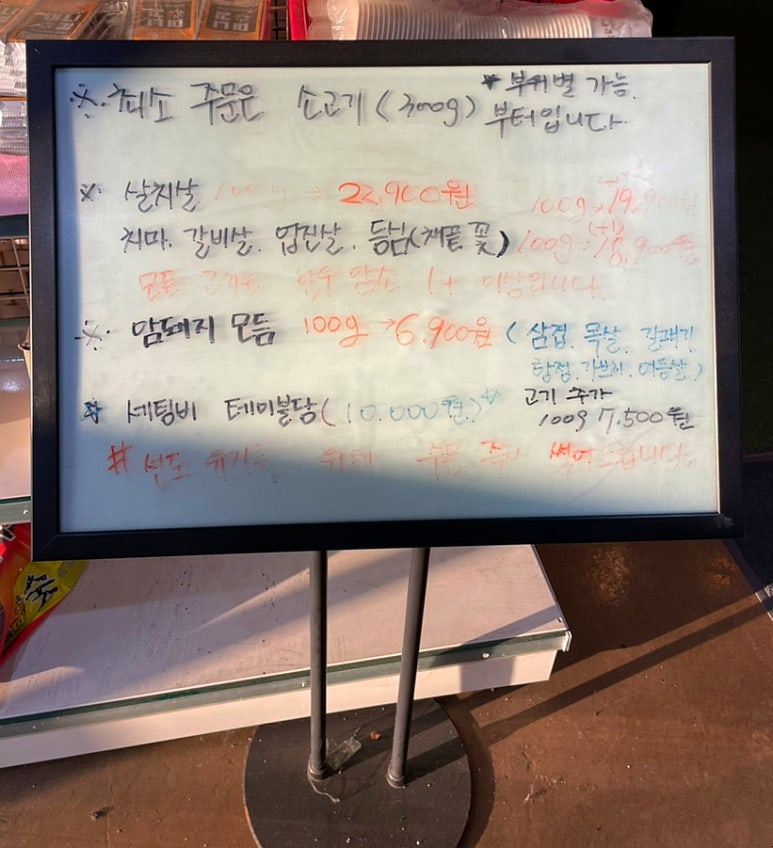 ※. 최소 주문은 소고기(300g) * 부위별 가능.
부터입니다.
※. 살치살 100g → 22,900원
100g → 19,900원
치마. 갈비살. 업진살. 등심(채끝 꽃) 100g → 18,900원
모든 고기는 한우 암소 1+ 이상입니다
※. 암돼지 모듬 100g → 6,900원 (삼겹. 목살. 갈매기
항정. 가브리. 여등살)
※ 세팅비 테이블당(10,000원) 고기 추가
100g 7,500원
# 선도 유지를 위해 주문 즉시 썰어드립니다.